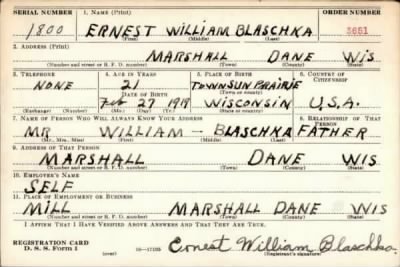 SERIAL NUMBER 1. NAME (Print) ORDER NUMBER
1800 ERNEST WILLIAM BLASCHKA 3651
(First) (Middle) (Last)
2. ADDRESS (Print)
MARSHALL DANE WIS
(Number and street or R. F. D. number) (Town) (County) (State)
3. TELEPHONE 4. AGE IN YEARS 5. PLACE OF BIRTH 6. COUNTRY OF CITIZENSHIP
NONE 21 TOWN SUN PRAIRIE
DATE OF BIRTH (Town or county)
Feb 27 1919 WISCONSIN U.S.A.
(Exchange) (Number) (Mo.) (Day) (Yr.) (State or country)
7. NAME OF PERSON WHO WILL ALWAYS KNOW YOUR ADDRESS 8. RELATIONSHIP OF THAT PERSON
MR WILLIAM - BLASCHKA FATHER
(Mr., Mrs., Miss) (First) (Middle) (Last)
9. ADDRESS OF THAT PERSON
MARSHALL DANE WIS
(Number and street or R. F. D. number) (Town) (County) (State)
10. EMPLOYER'S NAME
SELF
11. PLACE OF EMPLOYMENT OR BUSINESS
MILL MARSHALL DANE WIS
(Number and street or R. F. D. number) (Town) (County) (State)
I AFFIRM THAT I HAVE VERIFIED ABOVE ANSWERS AND THAT THEY ARE TRUE.
REGISTRATION CARD
D. S. S. Form 1 16-17105 Ernest William Blaschka
(Registrant's signature)